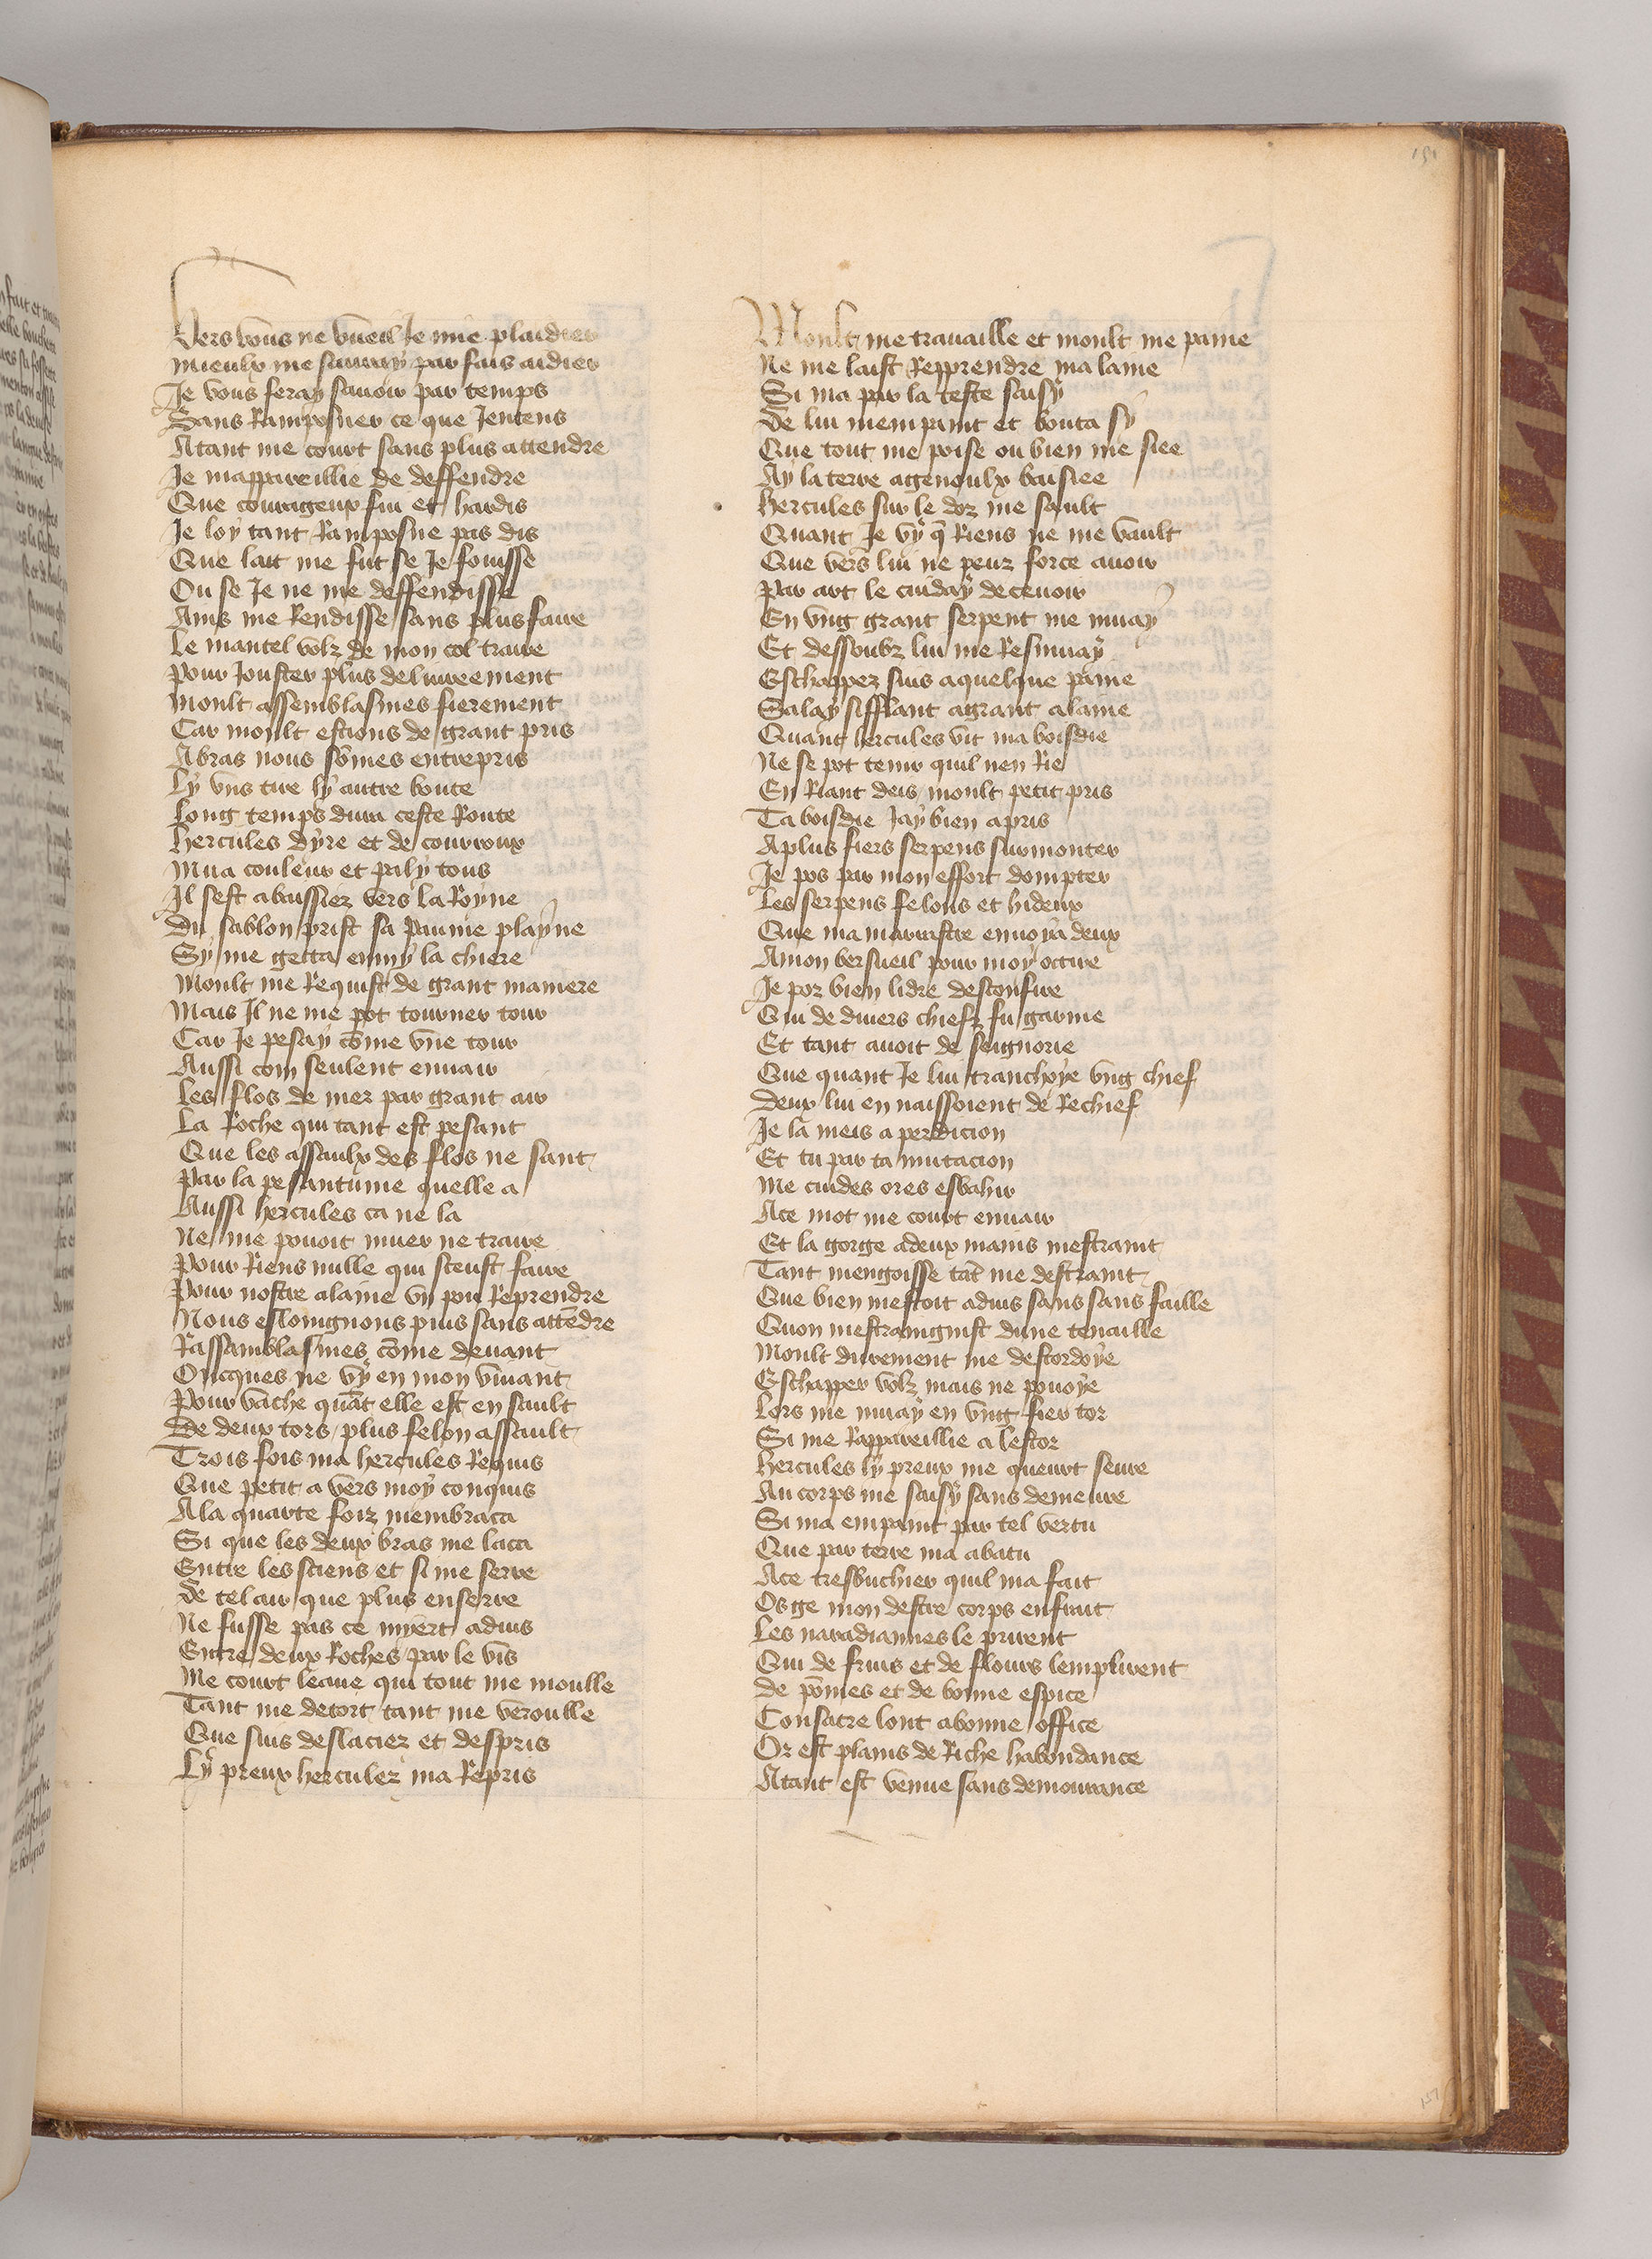 151
Vers vous ne vueil Je mie plaidier
Mieulx me sauray par fais aidier
Je vous feray sauoir par temps
Sans Ramposner ce que Jentens
Atant me court sans plus attendre
Je mappareillie de deffendre
Que courageux fui et hardis
Je loy tant Ramposne pas dis
Que lait me fut se Je fouisse
Ou se Je ne me deffendisse
Ains me Rendisse sans plus faire
Le mantel volz de mon col traire
Pour Jouster plus deliureement
Moult assemblasmes fierement
Car moult estions de grant pris
Abras nous sômes entrepris
Ly vns tire ly autre boute
Long temps dura ceste Route
Hercules dyre et de courroux
Mua couleur et paly tous
Il sest abaissiez vers la Royne
Du sablon prist sa paume playne
Sy me getta enmy la chiere
Moult me Requist de grant maniere
Mais Il ne me pot tourner tour
Car Je pesay cõme vne tour
Aussi com seulent enuair
Les flos de mer par grant air
La Roche qui tant est pesant
Que les assaulx des flos ne sant
Par la pesantume quelle a
Aussi hercules ca ne la
Ne me pouoit muer ne traire
Pour Riens nulle qui sceust faire
Pour nostre alaine vn pou Reprendre
Nous eslongnons puis sans attẽdre
Rassamblasmes cõme deuant
Oncques ne vy en mon viuant
Pour vache quãt elle est en sault
De deux tors plus felon assault
Trois fois ma hercules Requis
Que petit a vers moy conquis
Ala quarte foiz membraca
Si que les deux bras me laca
Entre les siens et si me serre
De tel air que plus enserre
Ne fusse pas ce myert aduis
Entre deux Roches par le vis
Me court leaue qui tout me moulle
Tant me detort tant me veroulle
Que suis deslaciez et despris
Ly preux herculez ma Repris
Moult me trauaille et moult me paine
Ne me laist Repprendre ma laine
Si ma par la teste saisy
De lui mempaint et bouta sy
Que tout me poise ou bien me siee
Ay la terre agenoulx baisiee
Hercules sur le doz me sault
Quant Je vy q̃ Riens ne me vault
Que vers lui ne peuz force auoir
Par art le cuiday deceuoir
En vng grant serpent me muay
Et dessoubz lui me Resmuay
Eschappez suis aquelque paine
Salay sifflant agrant alaine
Quant hercules vit ma boisdie
Ne se pot tenir quil nen Rie
En Riant deis moult petit pris
Ta boisdie Jay bien apris
Aplus fiers serpens surmonter
Je pos par mon effort dompter
Les serpens felons et hideux
Que ma marrastre enuoya deux
Amon bersueil pour moy occire
Je poz bien lidre desconfire
Qui de diuers chiefz fu garnie
Et tant auoit de seignorie
Que quant Je lui tranchoye vng chief
Deux lui en naissoient de Rechief
Je la meis a perdicion
Et tu par ta mutacion
Me cuides ores esbahir
Ace mot me court enuair
Et la gorge adeux mains mestraint
Tant mengoisse tãt me destraint
Que bien mestoit aduis sans sans faille
Quon mestraingnist dune tenaille
Moult durement me destordoye
Eschapper volz mais ne pouoye
Lors me muay en vng fier tor
Si me Rappareillie a lestor
Hercules ly preux me queurt seure
Au corps me saisy sans demeure
Si ma empaint par tel vertu
Que par terre ma abatu
Ace tresbuchier quil ma fait
Os ge mon destre corps enfrait
Les nayadiannes le prirent
Qui de fruis et de flours lemplirent
De põmes et de bonne espice
Consacre lont abonne office
Or est plains de Riche habondance
Atant est venue sans demourance
151